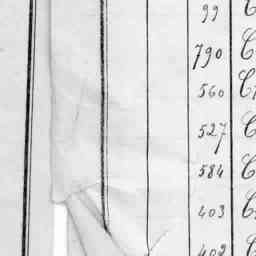 99 C
790 C
560 C
527 C
584 C
403 C
402 C